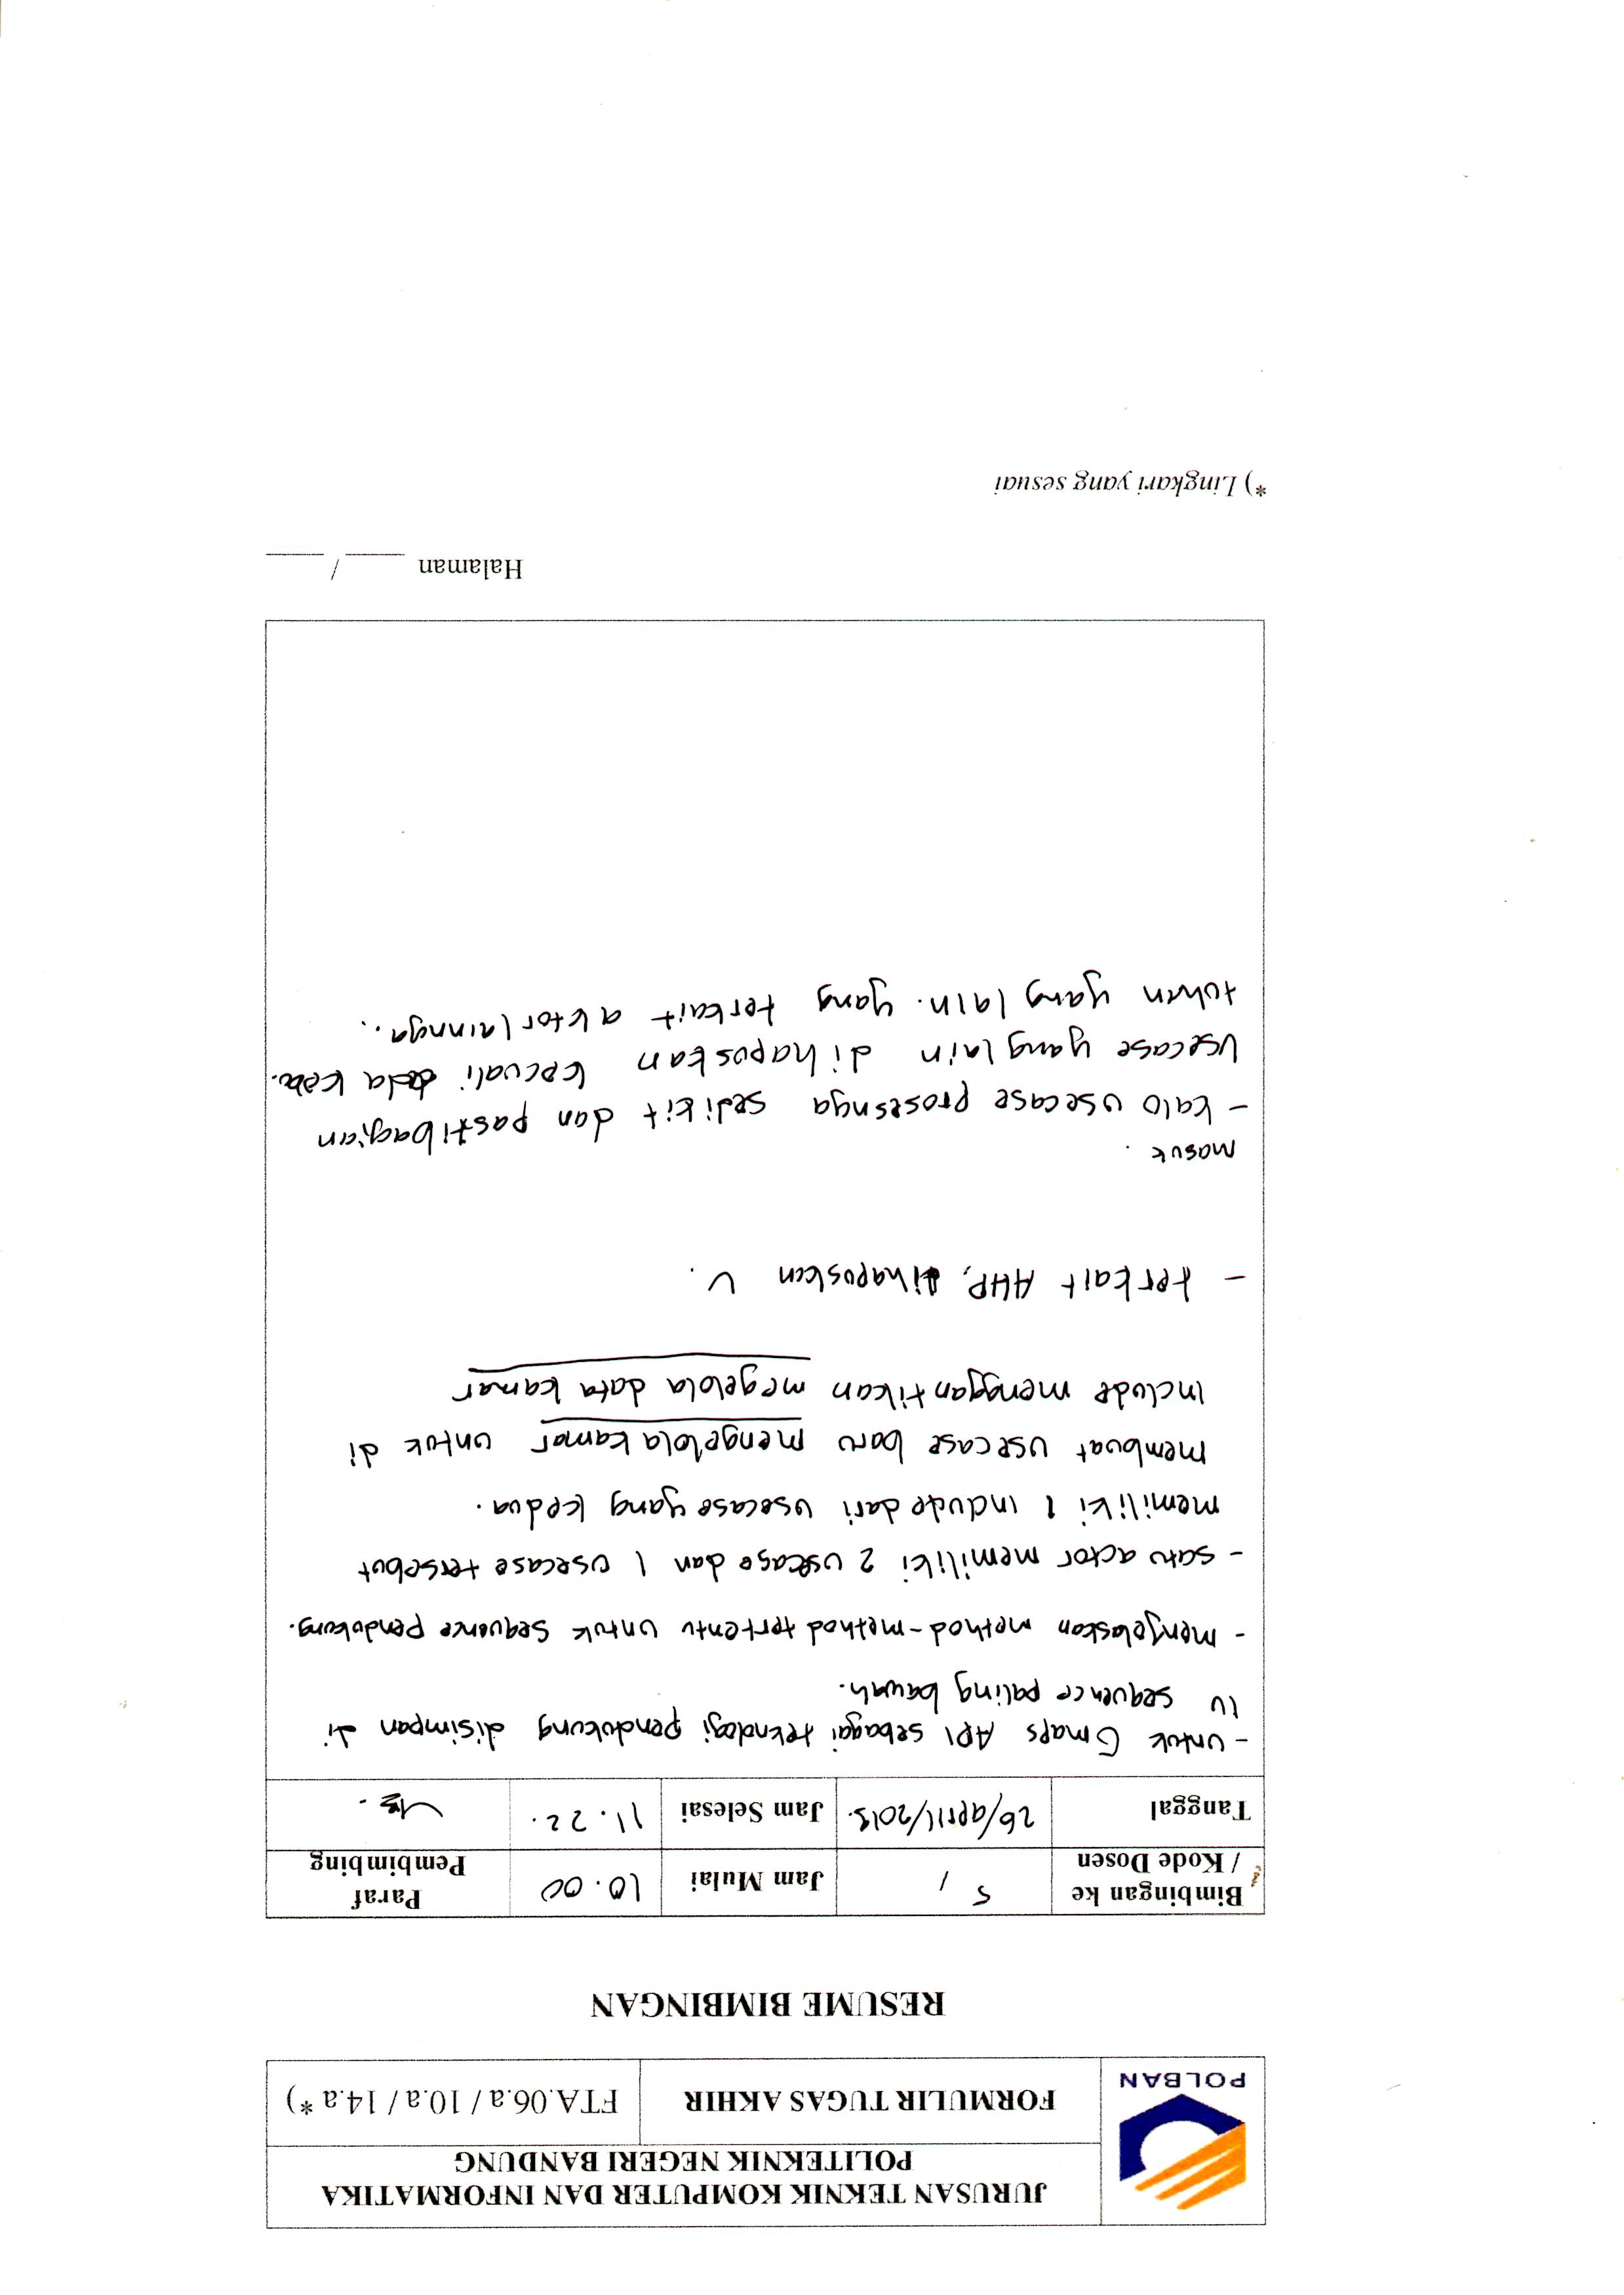 JURUSAN TEKNIK KOMPUTER DAN INFORMATIKA
POLITEKNIK NEGERI BANDUNG
POLBAN
FORMULIR TUGAS AKHIR
FTA.06.a / 10.a / 14.a *)
RESUME BIMBINGAN
Bimbingan ke / Kode Dosen
5 /
Jam Mulai
10.00
Paraf Pembimbing
Tanggal
26/april/2013.
Jam Selesai
11.22.
- untuk Gmaps API sebagai teknologi pendukung disimpan di
sequence paling bawah.
- menjelaskan method-method tertentu untuk sequence pendukung.
- satu actor memiliki 2 usecase dan 1 usecase tersebut
memiliki 1 include dari usecase yang kedua.
membuat usecase baru mengelola kamar untuk di
include menggantikan megelola data kamar
- terkait AHP, dihapuskan
masuk.
- kalo usecase prosesnya sedikit dan pasti bagian
usecase yang lain dihapuskan kecuali
yang lain. yang terkait aktor lainnya..
Halaman ____ / ____
*) Lingkari yang sesuai